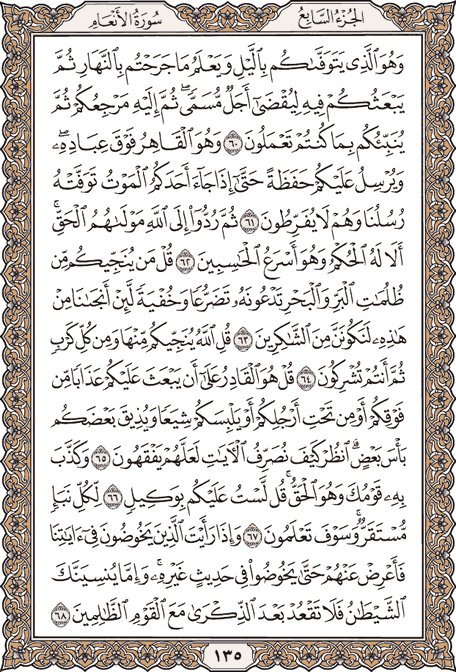 الجزء السابع
سورة الأنعام
وَهُوَ ٱلَّذِى يَتَوَفَّىٰكُم بِٱلَّيْلِ وَيَعْلَمُ مَا جَرَحْتُم بِٱلنَّهَارِ ثُمَّ
يَبْعَثُكُمْ فِيهِ لِيُقْضَىٰٓ أَجَلٌ مُّسَمًّى ۖ ثُمَّ إِلَيْهِ مَرْجِعُكُمْ ثُمَّ
يُنَبِّئُكُم بِمَا كُنتُمْ تَعْمَلُونَ ٦٠ وَهُوَ ٱلْقَاهِرُ فَوْقَ عِبَادِهِۦ ۖ
وَيُرْسِلُ عَلَيْكُمْ حَفَظَةً حَتَّىٰٓ إِذَا جَآءَ أَحَدَكُمُ ٱلْمَوْتُ تَوَفَّتْهُ
رُسُلُنَا وَهُمْ لَا يُفَرِّطُونَ ٦١ ثُمَّ رُدُّوٓا۟ إِلَى ٱللَّهِ مَوْلَىٰهُمُ ٱلْحَقِّ ۚ
أَلَا لَهُ ٱلْحُكْمُ وَهُوَ أَسْرَعُ ٱلْحَٰسِبِينَ ٦٢ قُلْ مَن يُنَجِّيكُم مِّن
ظُلُمَٰتِ ٱلْبَرِّ وَٱلْبَحْرِ تَدْعُونَهُۥ تَضَرُّعًا وَخُفْيَةً لَّئِنْ أَنجَىٰنَا مِنْ
هَٰذِهِۦ لَنَكُونَنَّ مِنَ ٱلشَّٰكِرِينَ ٦٣ قُلِ ٱللَّهُ يُنَجِّيكُم مِّنْهَا وَمِن كُلِّ كَرْبٍ
ثُمَّ أَنتُمْ تُشْرِكُونَ ٦٤ قُلْ هُوَ ٱلْقَادِرُ عَلَىٰٓ أَن يَبْعَثَ عَلَيْكُمْ عَذَابًا مِّن
فَوْقِكُمْ أَوْ مِن تَحْتِ أَرْجُلِكُمْ أَوْ يَلْبِسَكُمْ شِيَعًا وَيُذِيقَ بَعْضَكُم
بَأْسَ بَعْضٍ ۗ ٱنظُرْ كَيْفَ نُصَرِّفُ ٱلْءَايَٰتِ لَعَلَّهُمْ يَفْقَهُونَ ٦٥ وَكَذَّبَ
بِهِۦ قَوْمُكَ وَهُوَ ٱلْحَقُّ ۚ قُل لَّسْتُ عَلَيْكُم بِوَكِيلٍ ٦٦ لِّكُلِّ نَبَإٍ
مُّسْتَقَرٌّ ۚ وَسَوْفَ تَعْلَمُونَ ٦٧ وَإِذَا رَأَيْتَ ٱلَّذِينَ يَخُوضُونَ فِىٓ ءَايَٰتِنَا
فَأَعْرِضْ عَنْهُمْ حَتَّىٰ يَخُوضُوا۟ فِى حَدِيثٍ غَيْرِهِۦ ۚ وَإِمَّا يُنسِيَنَّكَ
ٱلشَّيْطَٰنُ فَلَا تَقْعُدْ بَعْدَ ٱلذِّكْرَىٰ مَعَ ٱلْقَوْمِ ٱلظَّٰلِمِينَ ٦٨
١٣٥